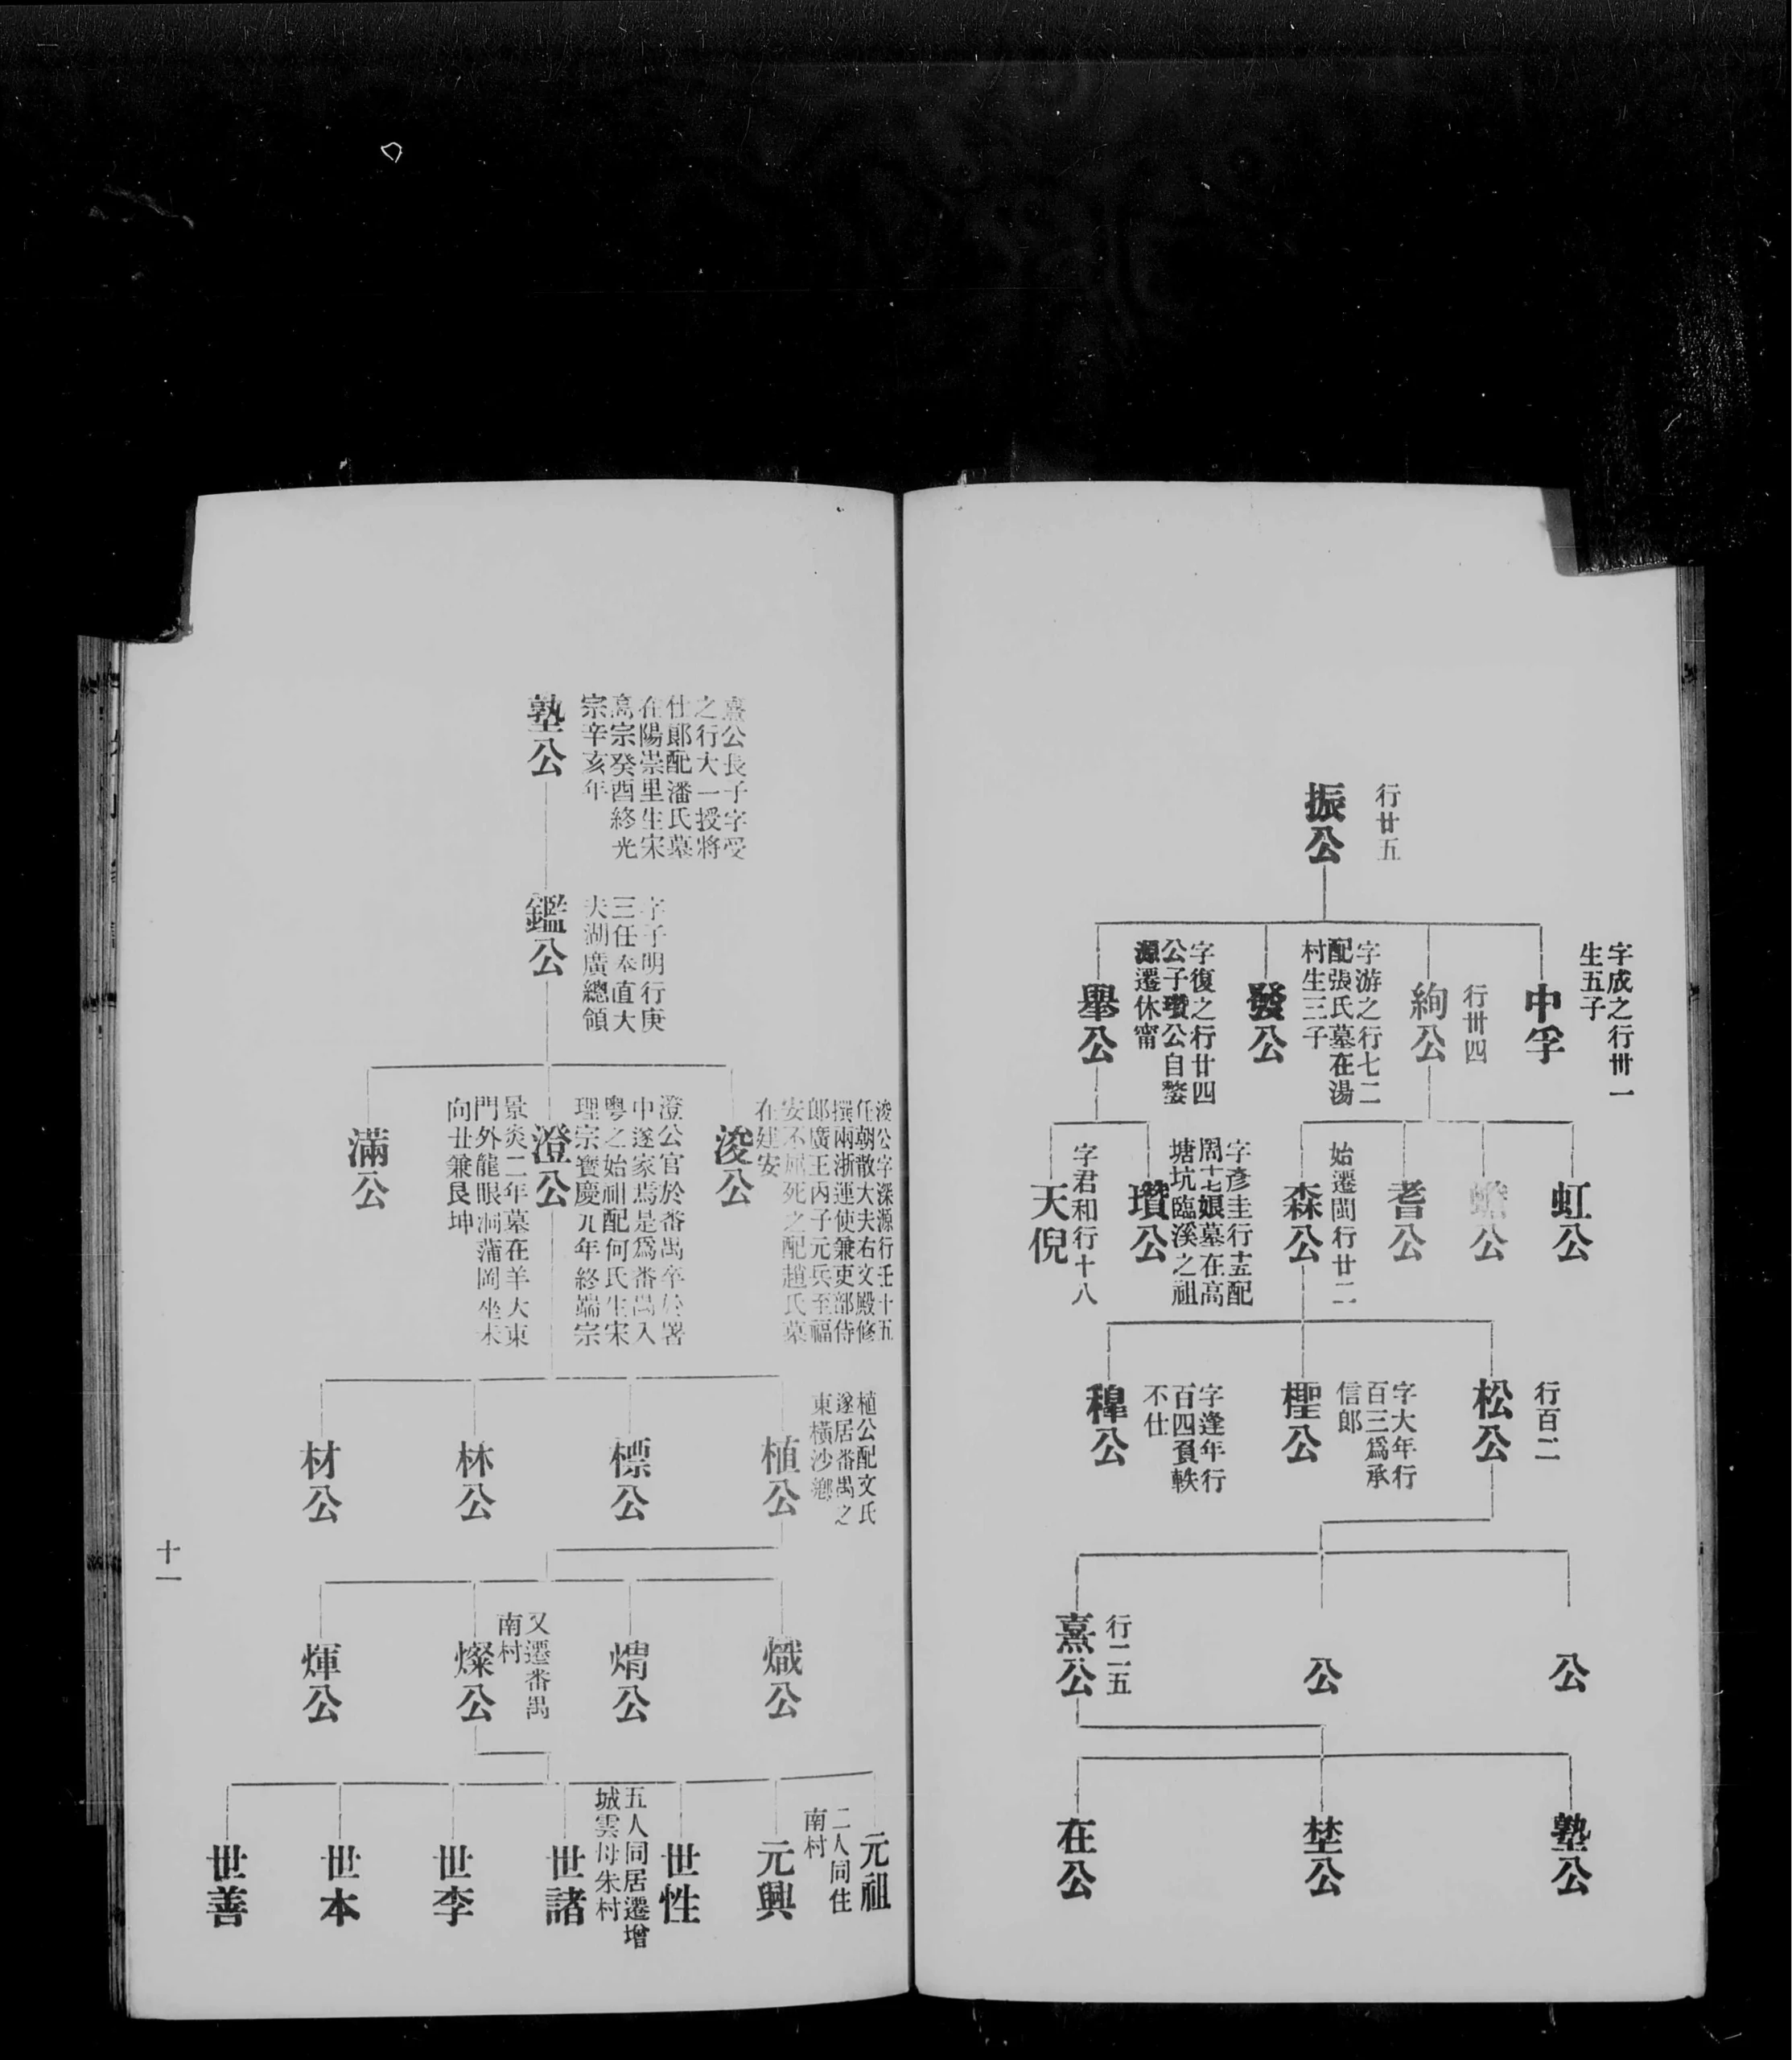 行廿五
振公
字成之行卅一
生五子
中孚
行卅四
絢公
字游之行七二
配張氏墓在湯
村生三子
發公
字復之行廿四
公子瓚公自婺
源遷休甯
舉公
虹公
蟾公
耆公
始遷閩行廿二
森公
字彥圭行十五配
周十七娘墓在高
塘坑臨溪之祖
瓚公
字君和行十八
天倪
行百二
松公
字大年行
百三爲承
信郎
檉公
字逢年行
百四負軼
不仕
稺公
公
公
行二五
熹公
塾公
埜公
在公
熹公長子字受
之行大一授將
仕郎配潘氏墓
在陽崇里生宋
高宗癸酉終光
宗辛亥年
塾公
字子明行庚
三任奉直大
夫湖廣總領
鑑公
浚公字深源行壬十五
任朝散大夫右文殿修
撰兩浙運使兼吏部侍
郎廣王丙子元兵至福
安不屈死之配趙氏墓
在建安
浚公
澄公官於番禺卒於署
中遂家焉是爲番禺入
粵之始祖配何氏生宋
理宗寶慶九年終端宗
澄公
景炎二年墓在羊大東
門外龍眼洞蒲岡坐未
向丑兼艮坤
滿公
植公配文氏
遂居番禺之
東橫沙鄉
植公
標公
林公
材公
熾公
焆公
又遷番禺
南村
燦公
煇公
元祖
二人同住
南村
元興
世性
五人同居遷增
城雲母朱村
世諸
世李
世本
世善
十一